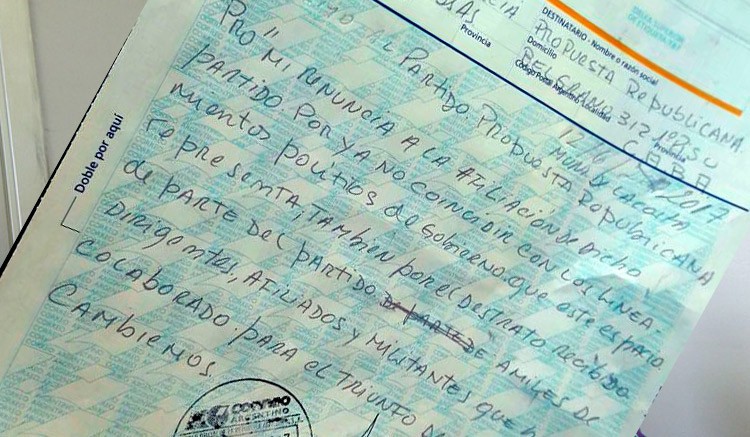 DESTINATARIO - Nombre o razón social
PROPUESTA REPUBLICANA
Domicilio
BELGRANO 312 1º PISO
Código Postal Argentino Localidad
Provincia
CABA
Provincia
Doble por aquí
2017
AL PARTIDO. PROPUESTA REPUBLICANA
PRO" MI RENUNCIA A LA AFILIACIÓN DE DICHO
PARTIDO. POR YA NO COINCIDIR CON LOS LINEA-
MIENTOS POLÍTICOS DE GOBIERNO QUE ESTE ESPACIO
REPRESENTA, TAMBIEN POR EL DESTRATO RECIBIDO
DE PARTE DEL PARTIDO DE PARTE DE A MILES DE
DIRIGENTES, AFILIADOS Y MILITANTES QUE
COLABORADO. PARA EL TRIUNFO DE
CAMBIEMOS.
CORREO
ARGENTINO